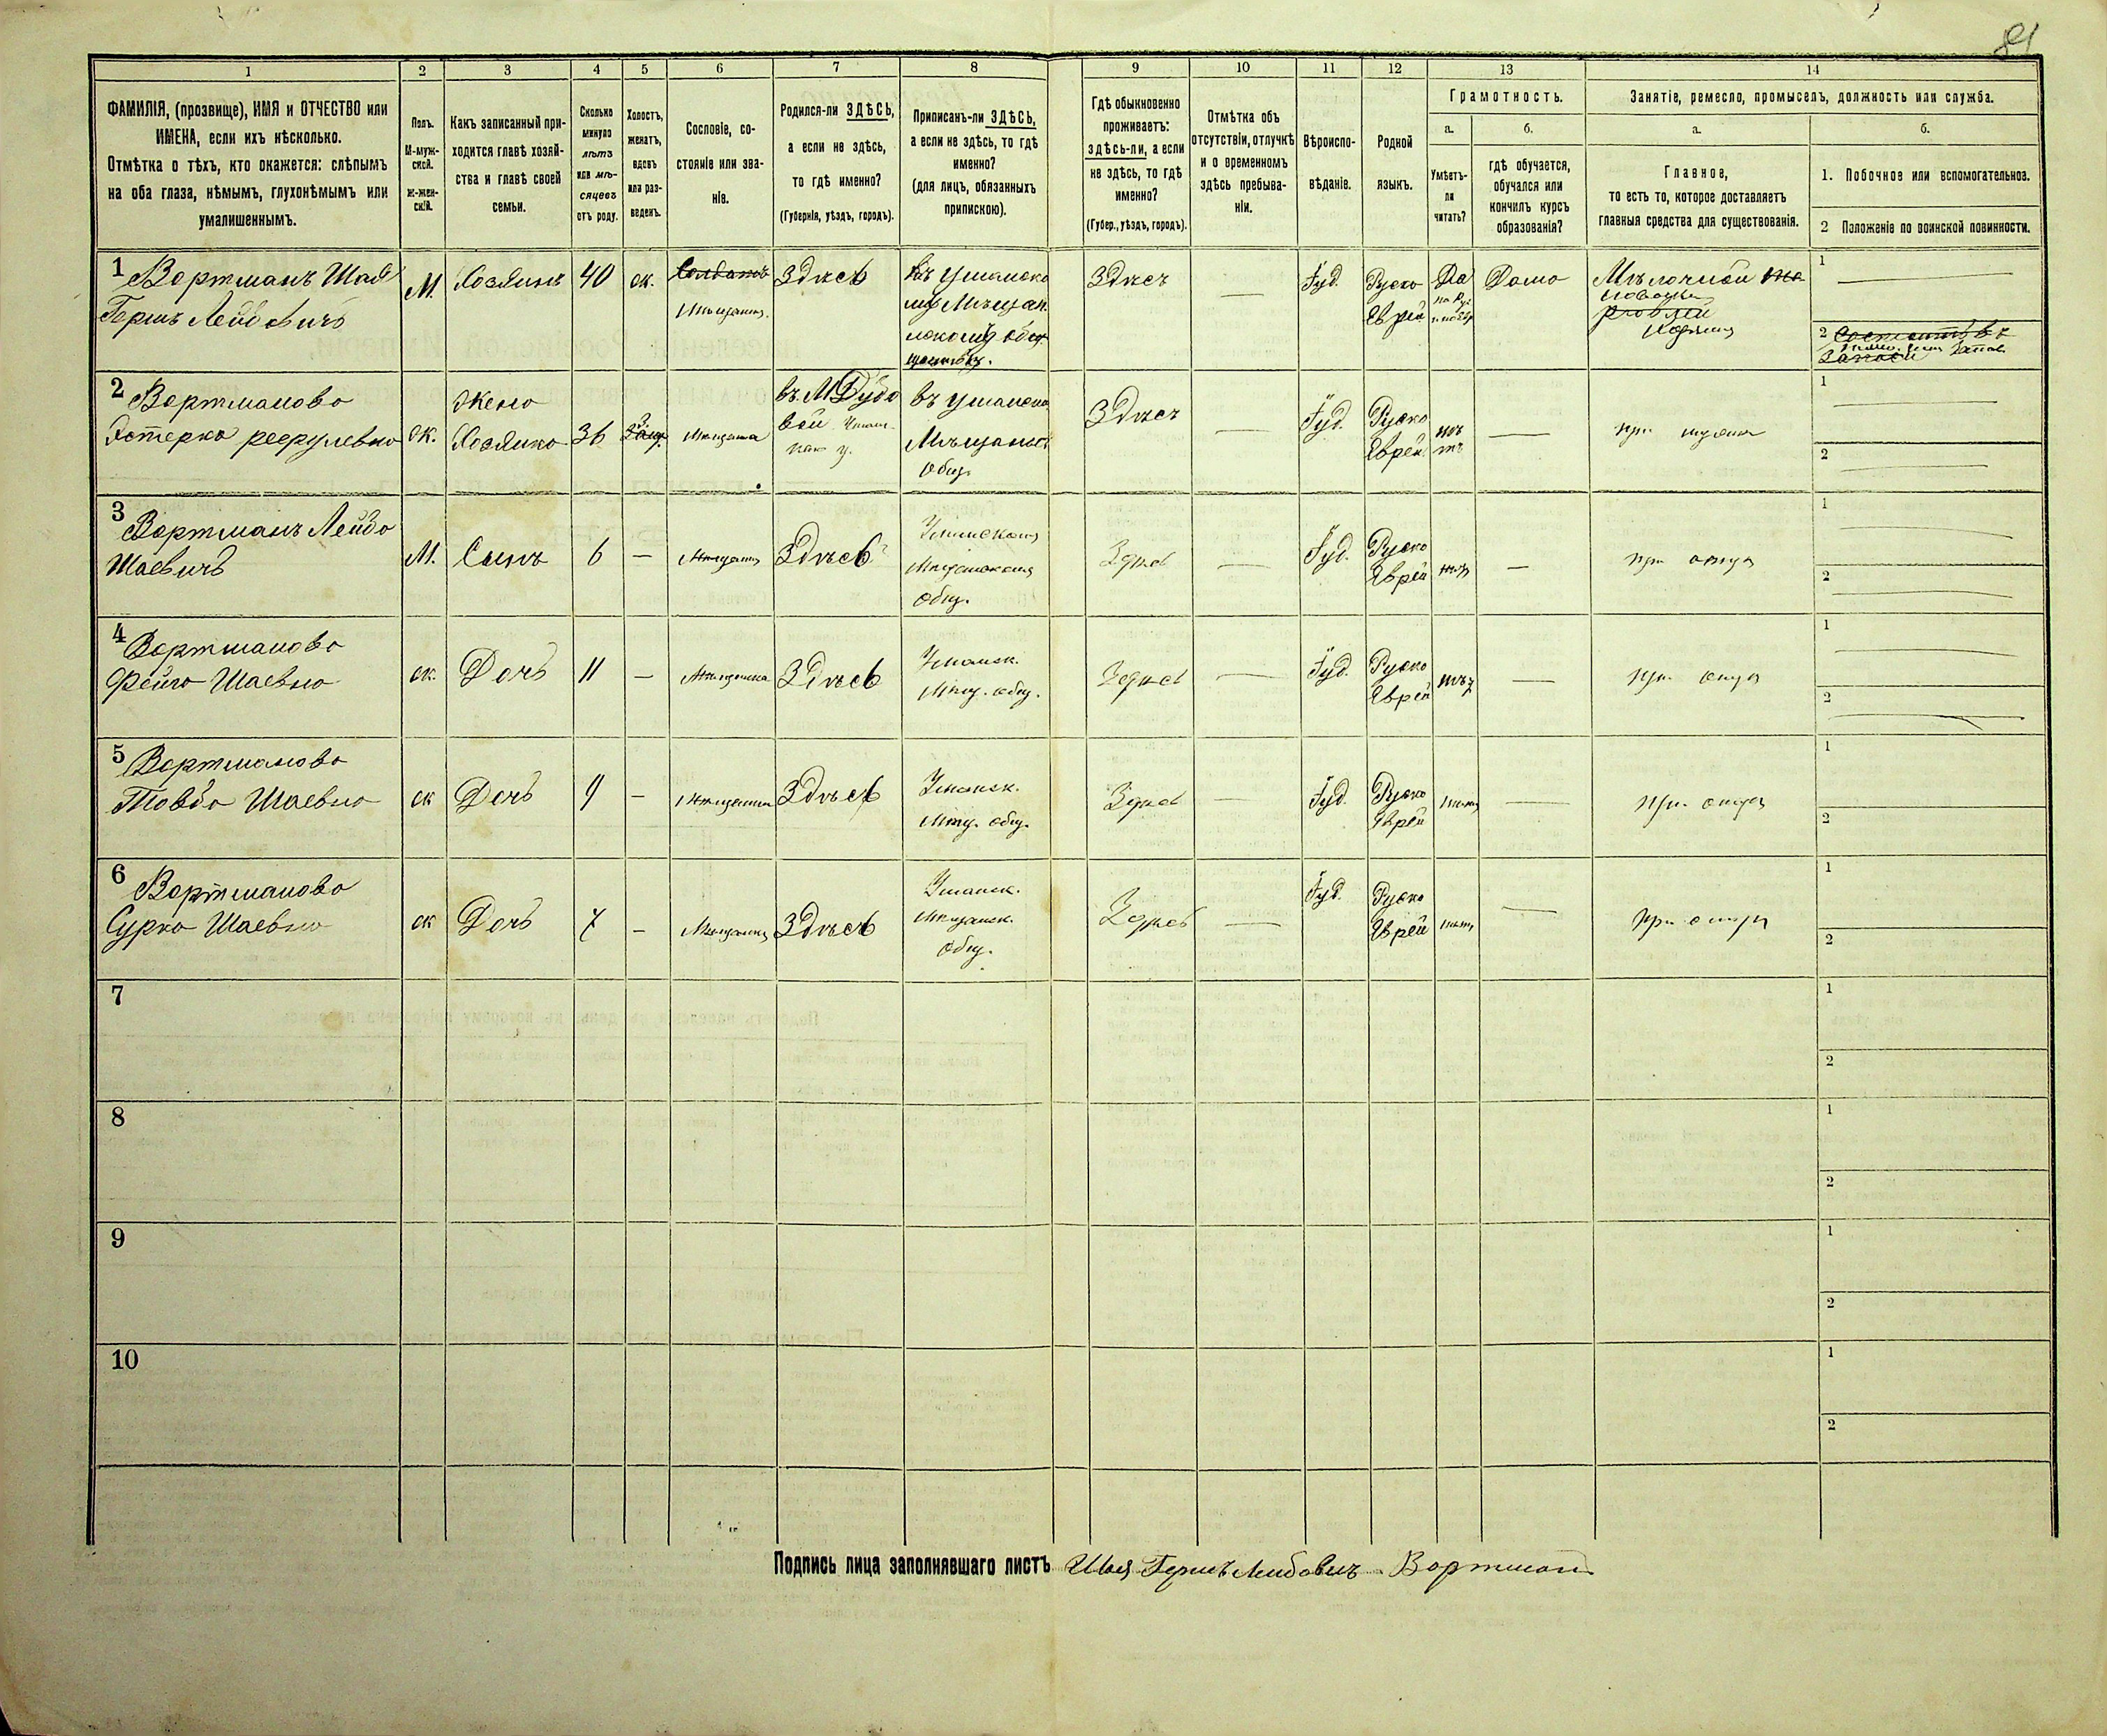 81
1 2 3 4 5 6 7 8 9 10 11 12 13 14
ФАМИЛІЯ, (прозвище), ИМЯ и ОТЧЕСТВО или
ИМЕНА, если ихъ нѣсколько.
Отмѣтка о тѣхъ, кто окажется: слѣпымъ
на оба глаза, нѣмымъ, глухонѣмымъ или
умалишеннымъ.
Полъ.
М-муж-
ской.
Ж-жен-
скій.
Какъ записанный при-
ходится главѣ хозяй-
ства и главѣ своей
семьи.
Сколько
минуло
лѣтъ
или мѣ-
сяцевъ
отъ роду.
Холостъ,
женатъ,
вдовъ
или раз-
веденъ.
Сословіе, со-
стояніе или зва-
ніе.
Родился-ли ЗДѢСЬ,
а если не здѣсь,
то гдѣ именно?
(Губернія, уѣздъ, городъ).
Приписанъ-ли ЗДѢСЬ,
а если не здѣсь, то гдѣ
именно?
(для лицъ, обязанныхъ
припискою).
Гдѣ обыкновенно
проживаетъ:
здѣсь-ли, а если
не здѣсь, то гдѣ
именно?
(Губер., уѣздъ, городъ).
Отмѣтка объ
отсутствіи, отлучкѣ
и о временномъ
здѣсь пребыва-
ніи.
Вѣроиспо-
вѣданіе.
Родной
языкъ.
Грамотность.
а.
Умѣетъ-
ли
читать?
б.
гдѣ обучается,
обучался или
кончилъ курсъ
образованія?
Занятіе, ремесло, промыселъ, должность или служба.
а.
Главное,
то есть то, которое доставляетъ
главныя средства для существованія.
б.
1. Побочное или вспомогательное.
2 Положеніе по воинской повинности.
1 Вортманъ Шая
Гершъ Лейбовичъ
М.
Хозяинъ
40
ж.
Солдатъ
Мѣщанин.
Здѣсь
Въ Уманско
му Мѣщан
скому обще
ству.
Здѣсь
—
Іуд.
Руско
Еврей
Да
Дома
Мѣлочной
Хозяин
1 —
2
2 Вортманова
Эстерка
ж.
Жена
Хозяина
36
Зам.
Мѣщанка
въ М. Дубо
вой Уман-
ском у.
въ Уманско
Мѣщанск
Общ.
Здѣсь
—
Іуд.
Руско
Еврей
нѣ
тъ
—
при мужѣ
1 —
2 —
3 Вортманъ Лейба
Шаевичъ
М.
Сынъ
6
—
Мѣщанин
Здѣсь
Уманскому
Мѣщанскому
Общ.
Здѣсь
—
Іуд.
Руско
Еврей
нѣтъ
—
при отцѣ
1 —
2 —
4 Вортманова
Фейга Шаевна
ж.
Дочь
11
—
Мѣщанка
Здѣсь
Уманск.
Мѣщ. общ.
Здѣсь
—
Іуд.
Руско
Еврей
нѣтъ
—
при отцѣ
1 —
2 —
5 Вортманова
Товба Шаевна
ж
Дочь
9
—
Мѣщанка
Здѣсь
Уманск.
Мѣщ. общ.
Здѣсь
—
Іуд.
Руско
Еврей
нѣтъ
—
при отцѣ
1
2
6 Вортманова
Сурка Шаевна
ж
Дочь
7
—
Мѣщанка
Здѣсь
Уманск.
Мѣщанск.
Общ.
Здѣсь
—
Іуд.
Руско
Еврей
нѣтъ
—
при отцѣ
1
2
7
1
2
8
1
2
9
1
2
10
1
2
Подпись лица заполнявшаго листъ Шая Гершъ Лейбовичъ Вортман